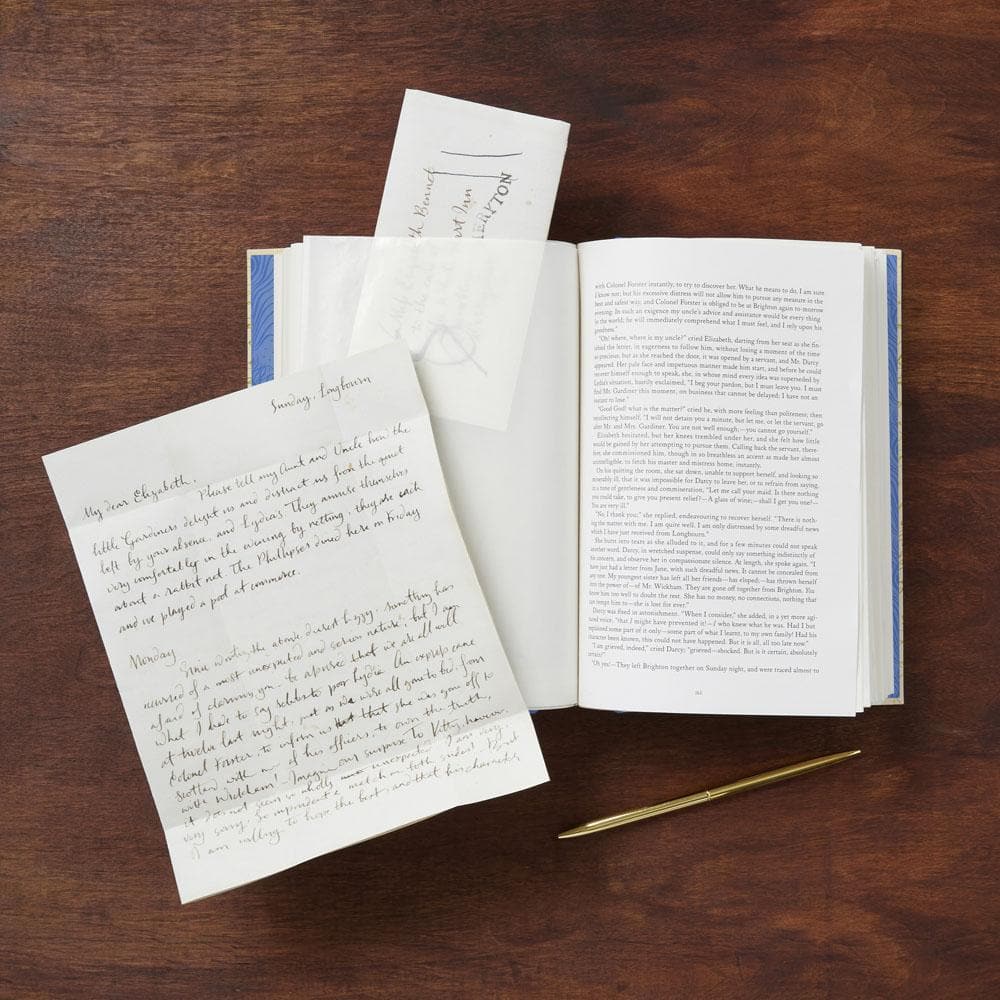 Sunday, Longbourn
My dear Elizabeth,
Please tell my Aunt and Uncle how the
little Gardiners delight us and distract us from the quiet
left by your absence, and Lydia's. They amuse themselves
very comfortably in the evening by netting; they are each
about a rabbit net. The Phillipses dined here on Friday
and we played a pool at commerce.
Monday
Since writing the above, dearest Lizzy, something has
occurred of a most unexpected and serious nature; but I am
afraid of alarming you - be assured that we are all well.
What I have to say relates to poor Lydia. An express came
at twelve last night, just as we were all gone to bed, from
Colonel Forster to inform us that she was gone off to
Scotland with one of his officers, to own the truth,
with Wickham! Imagine our surprise. To Kitty, however,
it does not seem so wholly unexpected. I am very,
very sorry. So imprudent a match on both sides! But
I am willing to hope the best, and that his character
Bennet
Inn
MERYTON
with Colonel Forster instantly, to try to discover her. What he means to do, I am sure
I know not; but his excessive distress will not allow him to pursue any measure in the
best and safest way, and Colonel Forster is obliged to be at Brighton again to-morrow
evening. In such an exigence my uncle's advice and assistance would be every thing
in the world; he will immediately comprehend what I must feel, and I rely upon his
goodness."
"Oh! where, where is my uncle?" cried Elizabeth, darting from her seat as she fin-
ished the letter, in eagerness to follow him, without losing a moment of the time
so precious; but as she reached the door, it was opened by a servant, and Mr. Darcy
appeared. Her pale face and impetuous manner made him start, and before he could
recover himself enough to speak, she, in whose mind every idea was superseded by
Lydia's situation, hastily exclaimed, "I beg your pardon, but I must leave you. I must
find Mr. Gardiner this moment, on business that cannot be delayed; I have not an
instant to lose."
"Good God! what is the matter?" cried he, with more feeling than politeness; then
recollecting himself, "I will not detain you a minute, but let me, or let the servant, go
after Mr. and Mrs. Gardiner. You are not well enough;—you cannot go yourself."
Elizabeth hesitated, but her knees trembled under her, and she felt how little
would be gained by her attempting to pursue them. Calling back the servant, there-
fore, she commissioned him, though in so breathless an accent as made her almost
unintelligible, to fetch his master and mistress home, instantly.
On his quitting the room, she sat down, unable to support herself, and looking so
miserably ill, that it was impossible for Darcy to leave her, or to refrain from saying,
in a tone of gentleness and commiseration, "Let me call your maid. Is there nothing
you could take, to give you present relief?—A glass of wine;—shall I get you one?—
You are very ill."
"No, I thank you;" she replied, endeavouring to recover herself. "There is noth-
ing the matter with me. I am quite well. I am only distressed by some dreadful news
which I have just received from Longbourn."
She burst into tears as she alluded to it, and for a few minutes could not speak
another word. Darcy, in wretched suspense, could only say something indistinctly of
his concern, and observe her in compassionate silence. At length, she spoke again. "I
have just had a letter from Jane, with such dreadful news. It cannot be concealed from
any one. My youngest sister has left all her friends—has eloped;—has thrown herself
into the power of—of Mr. Wickham. They are gone off together from Brighton. You
know him too well to doubt the rest. She has no money, no connections, nothing that
can tempt him to—she is lost for ever."
Darcy was fixed in astonishment. "When I consider," she added, in a yet more agi-
tated voice, "that I might have prevented it!—I who knew what he was. Had I but
explained some part of it only—some part of what I learnt, to my own family! Had his
character been known, this could not have happened. But it is all, all too late now."
"I am grieved, indeed," cried Darcy; "grieved—shocked. But is it certain, absolutely
certain?"
"Oh yes!—They left Brighton together on Sunday night, and were traced almost to